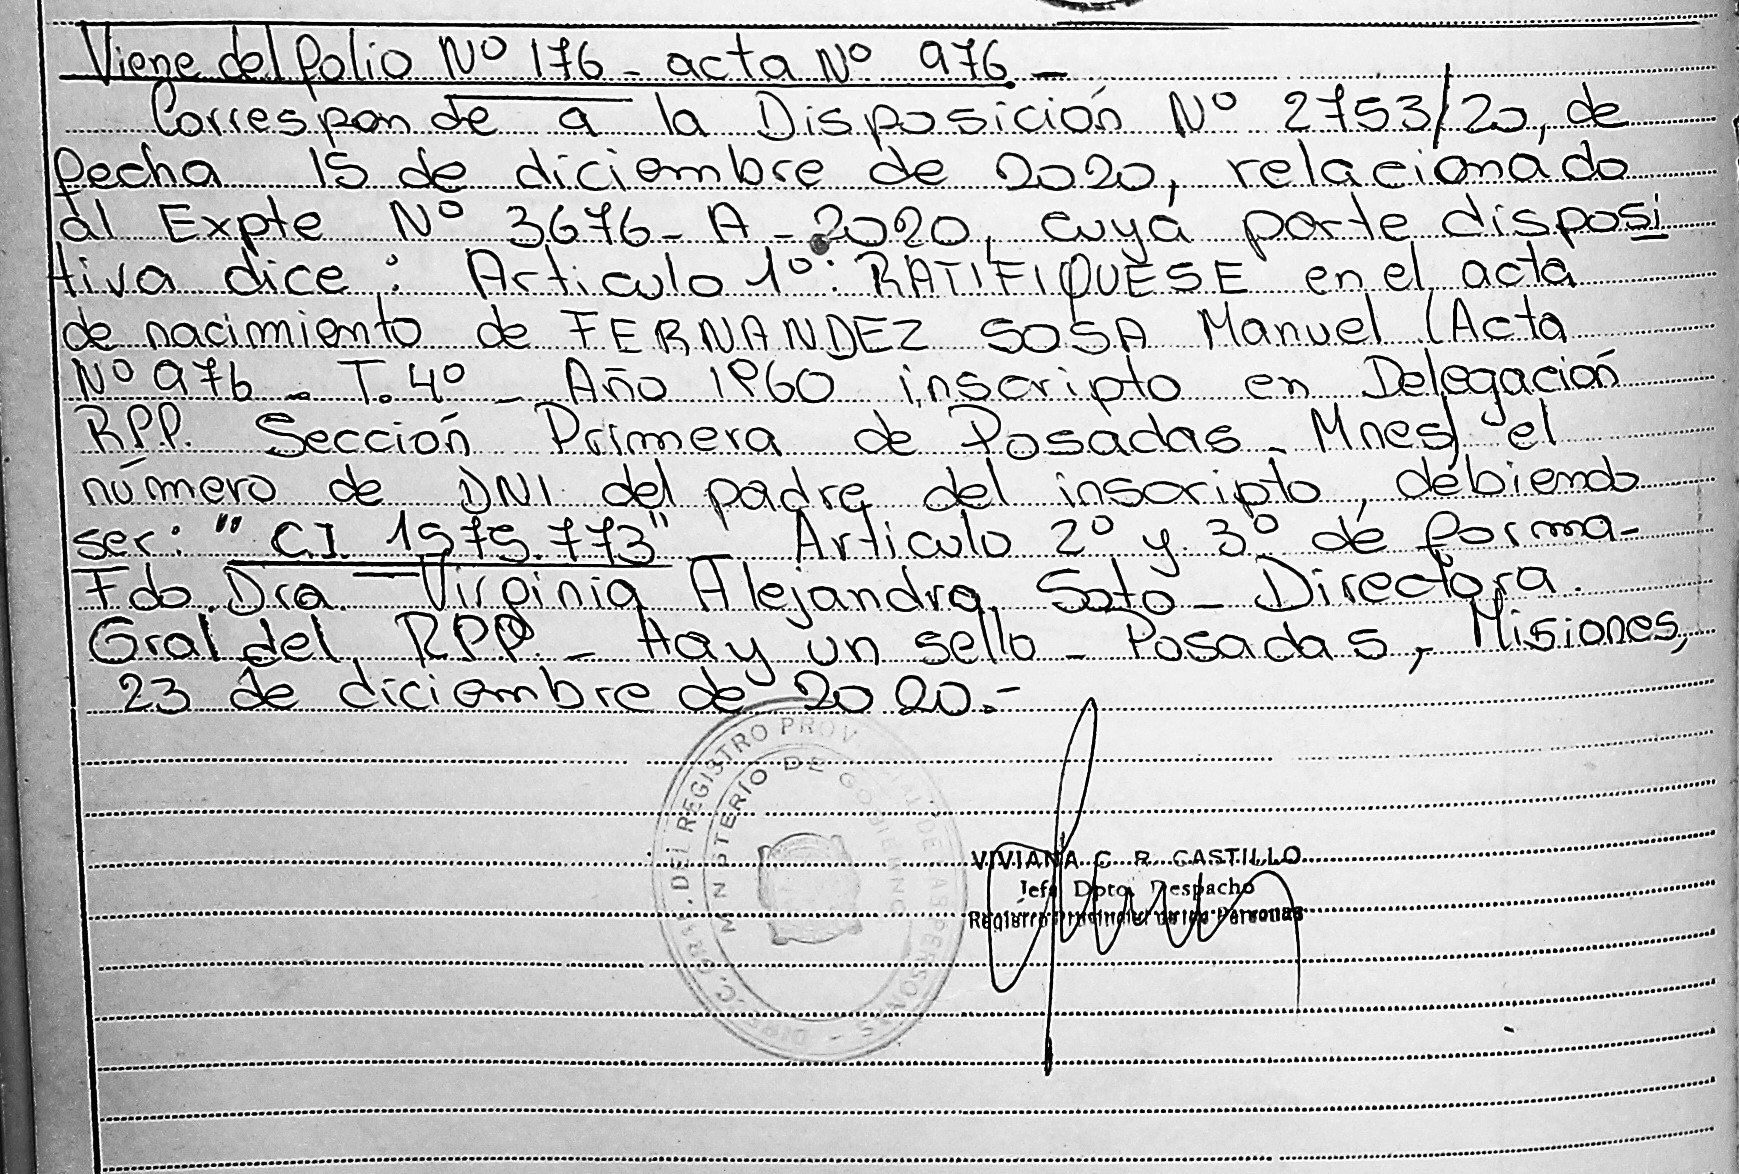 Viene del folio Nº 176 - acta Nº 976. -
Corresponde a la Disposición Nº 2753/20, de
fecha 15 de diciembre de 2020, relacionado
al Expte Nº 3676 - A - 2020, cuya parte disposi
tiva dice: Articulo 1º: RATIFIQUESE en el acta
de nacimiento de FERNANDEZ SOSA Manuel (Acta
Nº 976 - T. 4º - Año 1960 inscripto en Delegación
RPP. Sección Primera de Posadas - Mnes) el
número de DNI del padre del inscripto, debiendo
ser: "C.I. 1575.773" - Articulo 2º y 3º de forma-
Fdo. Dra. Virginia Alejandra Soto - Directora
Gral del RPP - Hay un sello - Posadas, Misiones,
23 de diciembre de 2020.-
DIREC. GRAL. DEL REGISTRO PROVINCIAL DE LAS PERSONAS -
MINISTERIO DE GOBIERNO
VIVIANA C. R. CASTILLO
Jefa Dpto. Despacho
Registro Provincial de las Personas